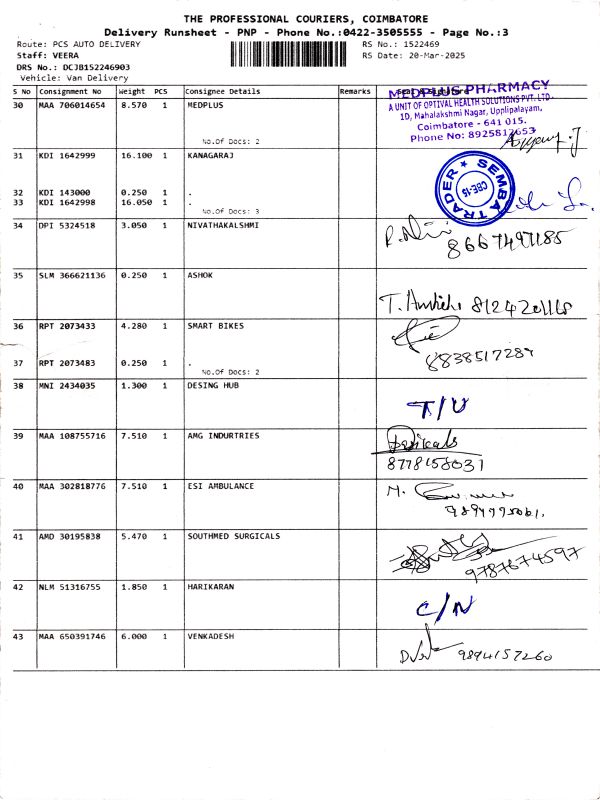 THE PROFESSIONAL COURIERS, COIMBATORE
Delivery Runsheet - PNP - Phone No.:0422-3505555 - Page No.:3
Route: PCS AUTO DELIVERY
RS No.: 1522469
Staff: VEERA
RS Date: 20-Mar-2025
DRS No.: DCJB152246903
Vehicle: Van Delivery
S No Consignment No Weight PCS Consignee Details Remarks
30 MAA 706014654 8.570 1 MEDPLUS
No.Of Docs: 2
MEDPLUS PHARMACY
A UNIT OF OPTIVAL HEALTH SOLUTIONS PVT. LTD.
1D, Mahalakshmi Nagar, Uppilipalayam,
Coimbatore - 641 015.
Phone No: 8925812653
31 KDI 1642999 16.100 1 KANAGARAJ
32 KDI 143000 0.250 1 .
33 KDI 1642998 16.050 1 .
No.Of Docs: 3
SEMBA TRADER
CBE-15
34 DPI 5324518 3.050 1 NIVATHAKALSHMI
8667497185
35 SLM 366621136 0.250 1 ASHOK
36 RPT 2073433 4.280 1 SMART BIKES
37 RPT 2073483 0.250 1 .
No.Of Docs: 2
38 MNI 2434035 1.300 1 DESING HUB
T/U
39 MAA 108755716 7.510 1 AMG INDURTRIES
8778158031
40 MAA 302818776 7.510 1 ESI AMBULANCE
M.
41 AMD 30195838 5.470 1 SOUTHMED SURGICALS
9787674597
42 NLM 51316755 1.850 1 HARIKARAN
C/N
43 MAA 650391746 6.000 1 VENKADESH
9894157260